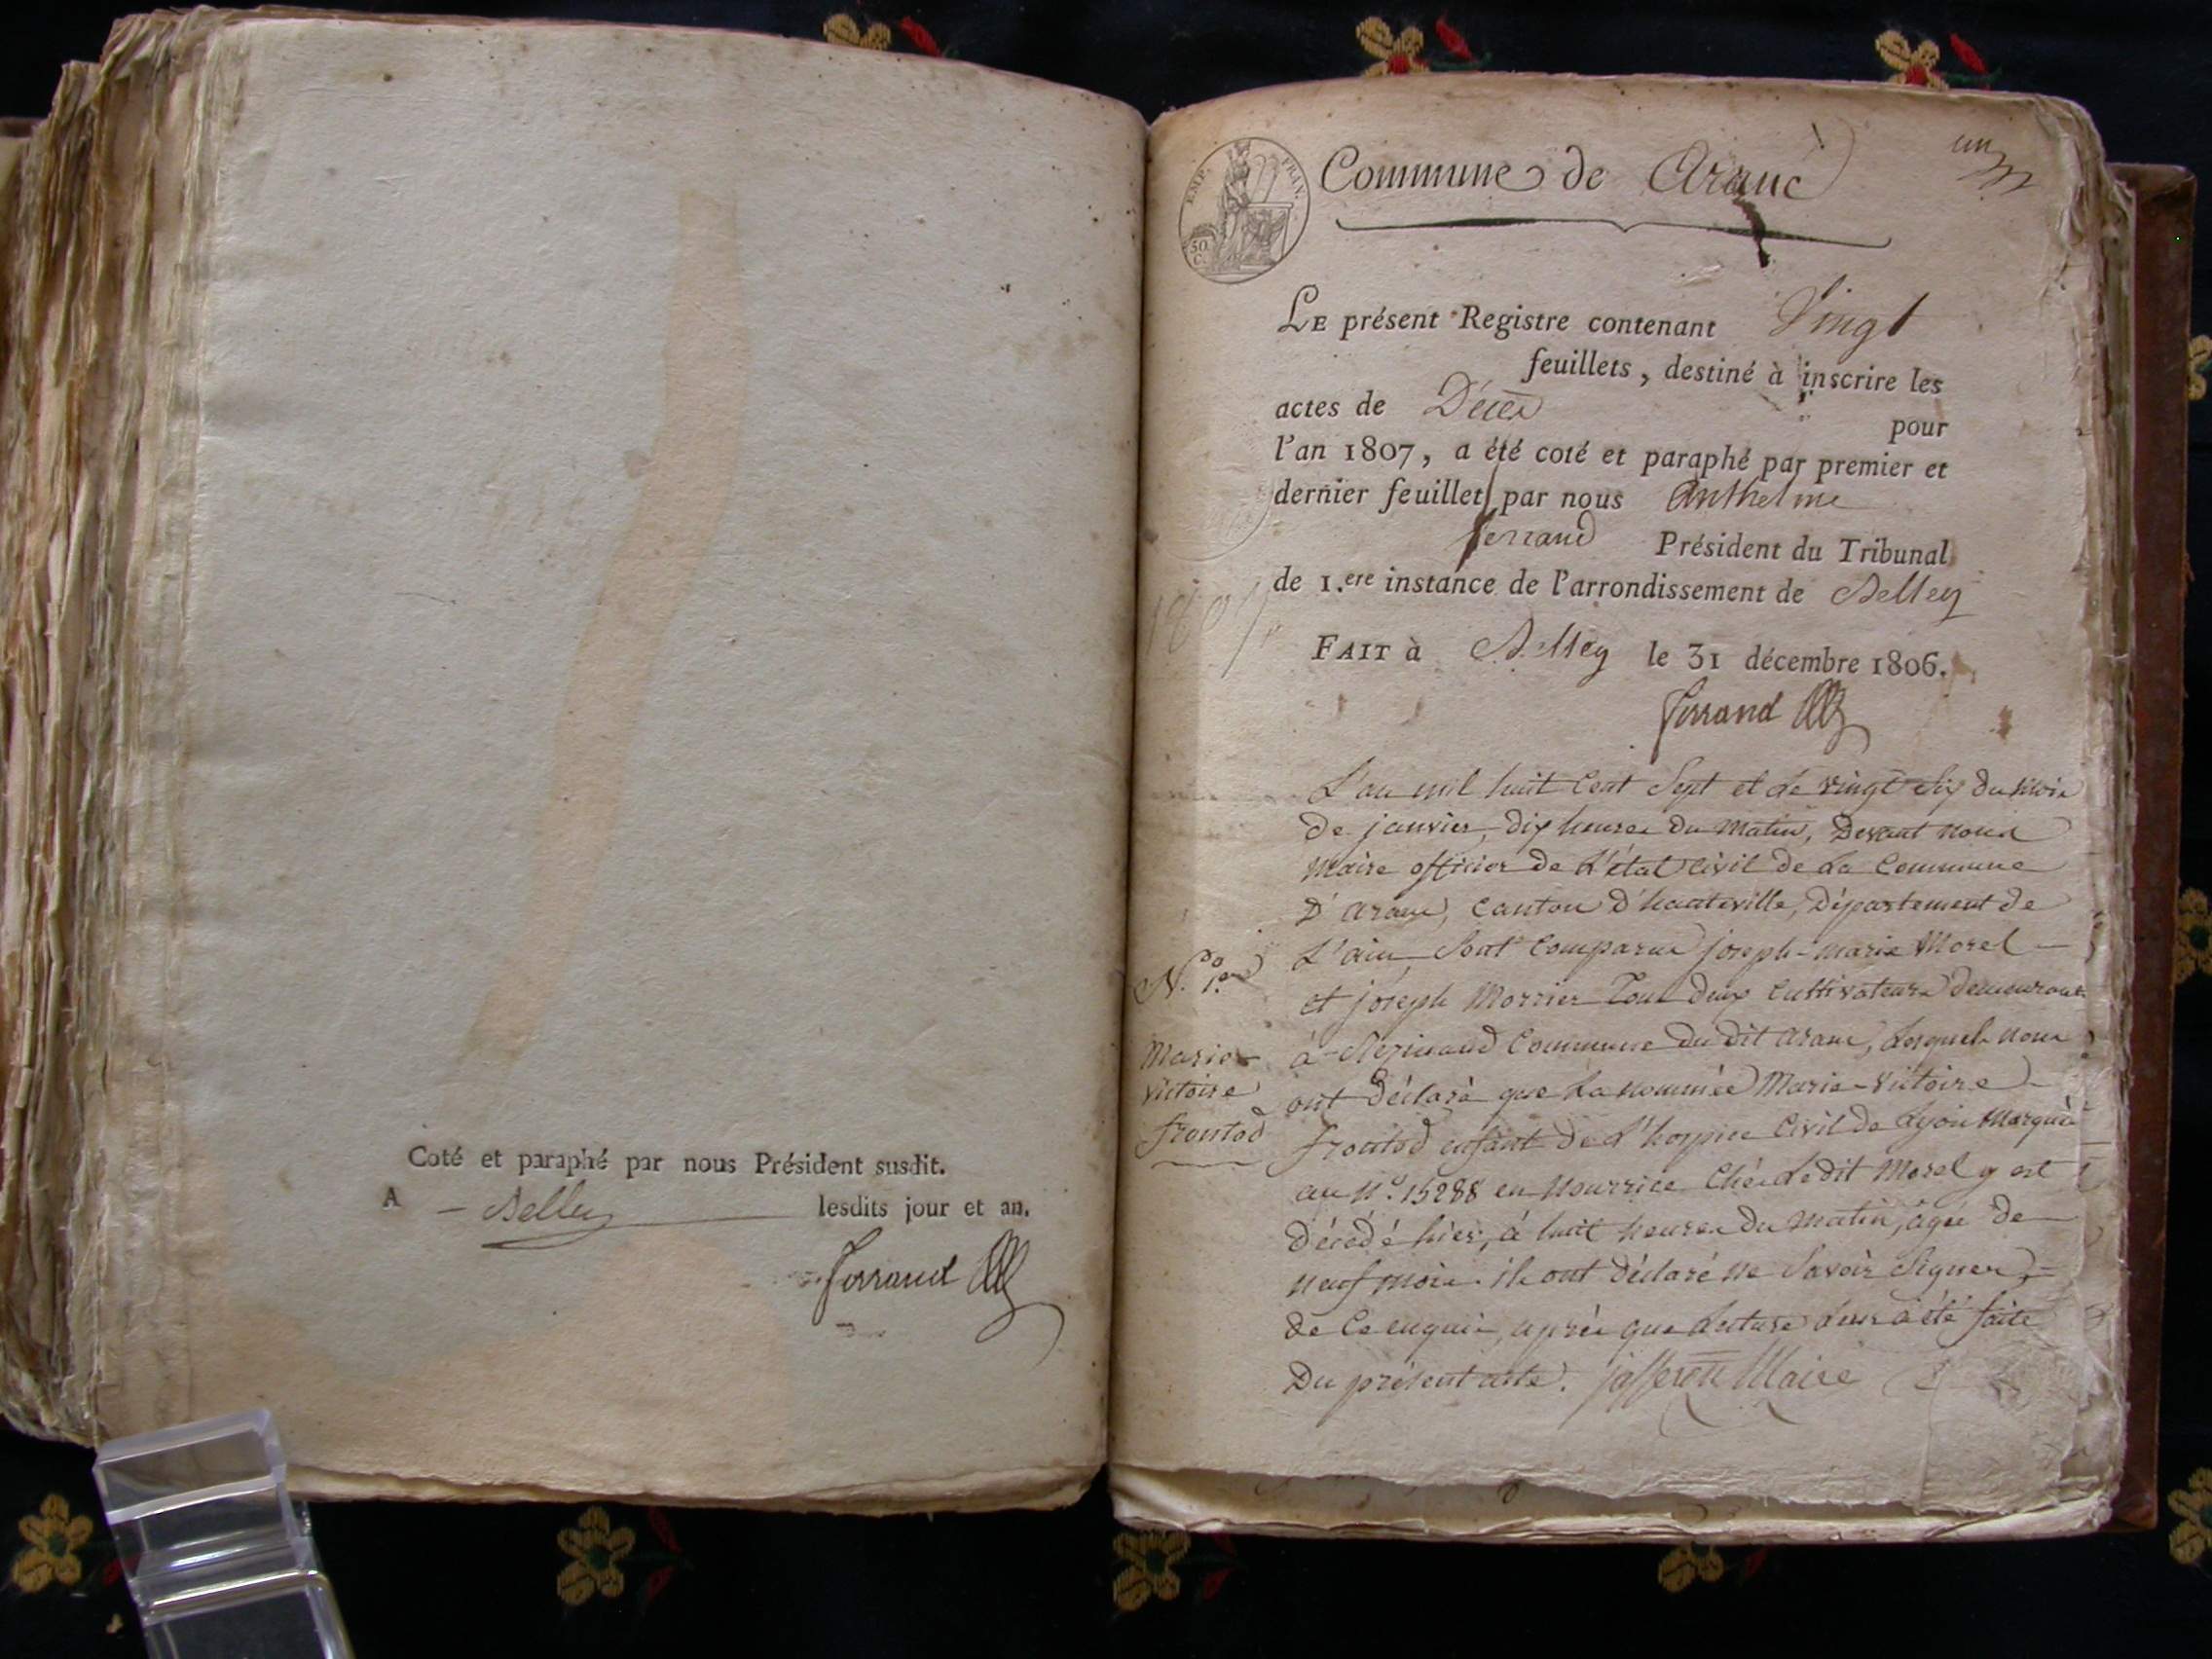 Coté et paraphé par nous Président susdit.
A — Belley lesdits jour et an.
Ferrand
un
EMP. FRAN.
50 C.
Commune de Aranc
LE présent Registre contenant Vingt
feuillets, destiné à inscrire les
actes de Décès
pour
l'an 1807, a été coté et paraphé par premier et
dernier feuillet par nous Anthelme
ferrand Président du Tribunal
de 1.ere instance de l'arrondissement de Belley
FAIT à Belley le 31 décembre 1806.
Ferrand
1807
L'an mil huit Cent Sept et le vingt Six du mois
De janvier, dix heures du matin, Devant nous
Maire officier de L'état Civil de La Commune
D'aranc, Canton d'hauteville, Département de
L'ain Sont Comparus joseph-marie Morel —
et joseph Morrier Tous deux Cultivateurs demeurants
à Rezinand Commune du dit aranc, Lesquels nous
ont Déclaré que La nommée Marie-Victoire
frontod enfant de L'hospice Civil de Lyon Marquée
au N.° 15288 en Nourrice Chés Ledit Morel y est
Décédé hier, à huit heures du matin, agée de
neuf mois. ils ont Déclaré ne Savoir Signer,
de Ce enquis, après que Lecture Leur a été faite
Du présent acte. jafferon Maire
N.° 1.er
Marie
Victoire
frontod